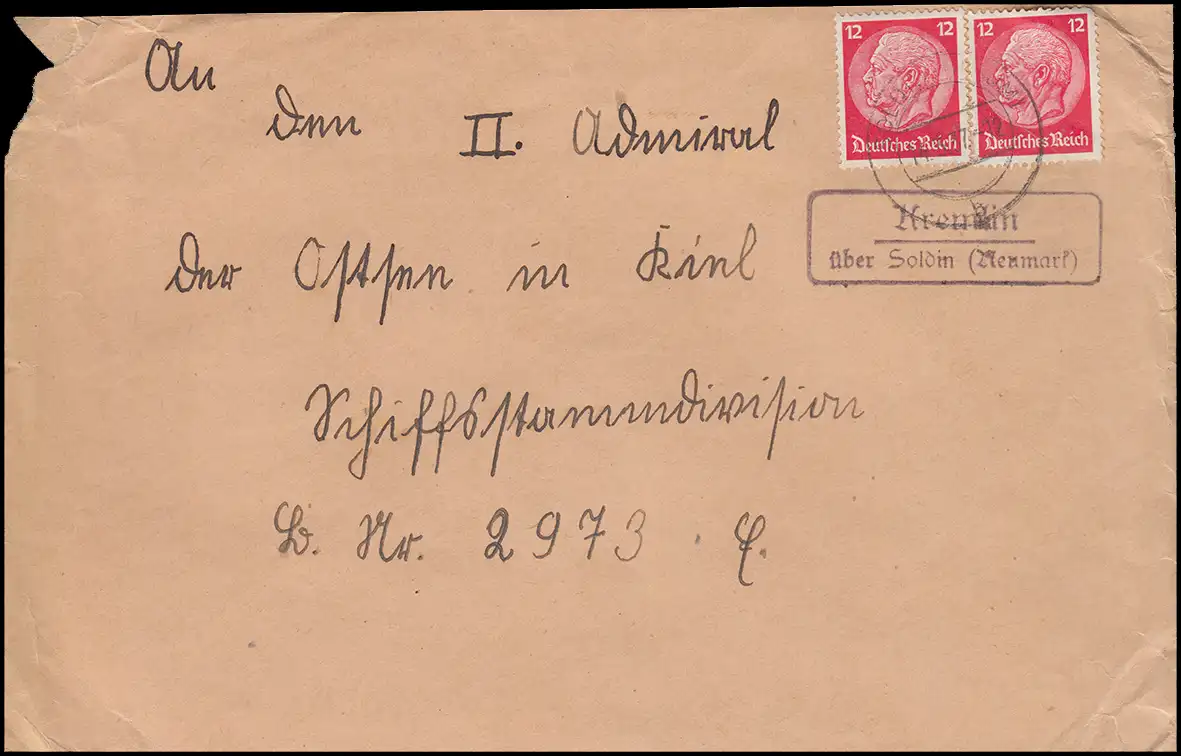 12 12 12 12
Deutsches Reich Deutsches Reich
An
den II. Admiral
der Ostsee in Kiel
Kremlin
über Soldin (Neumark)
Schiffsstammdivision
B. Nr. 2973